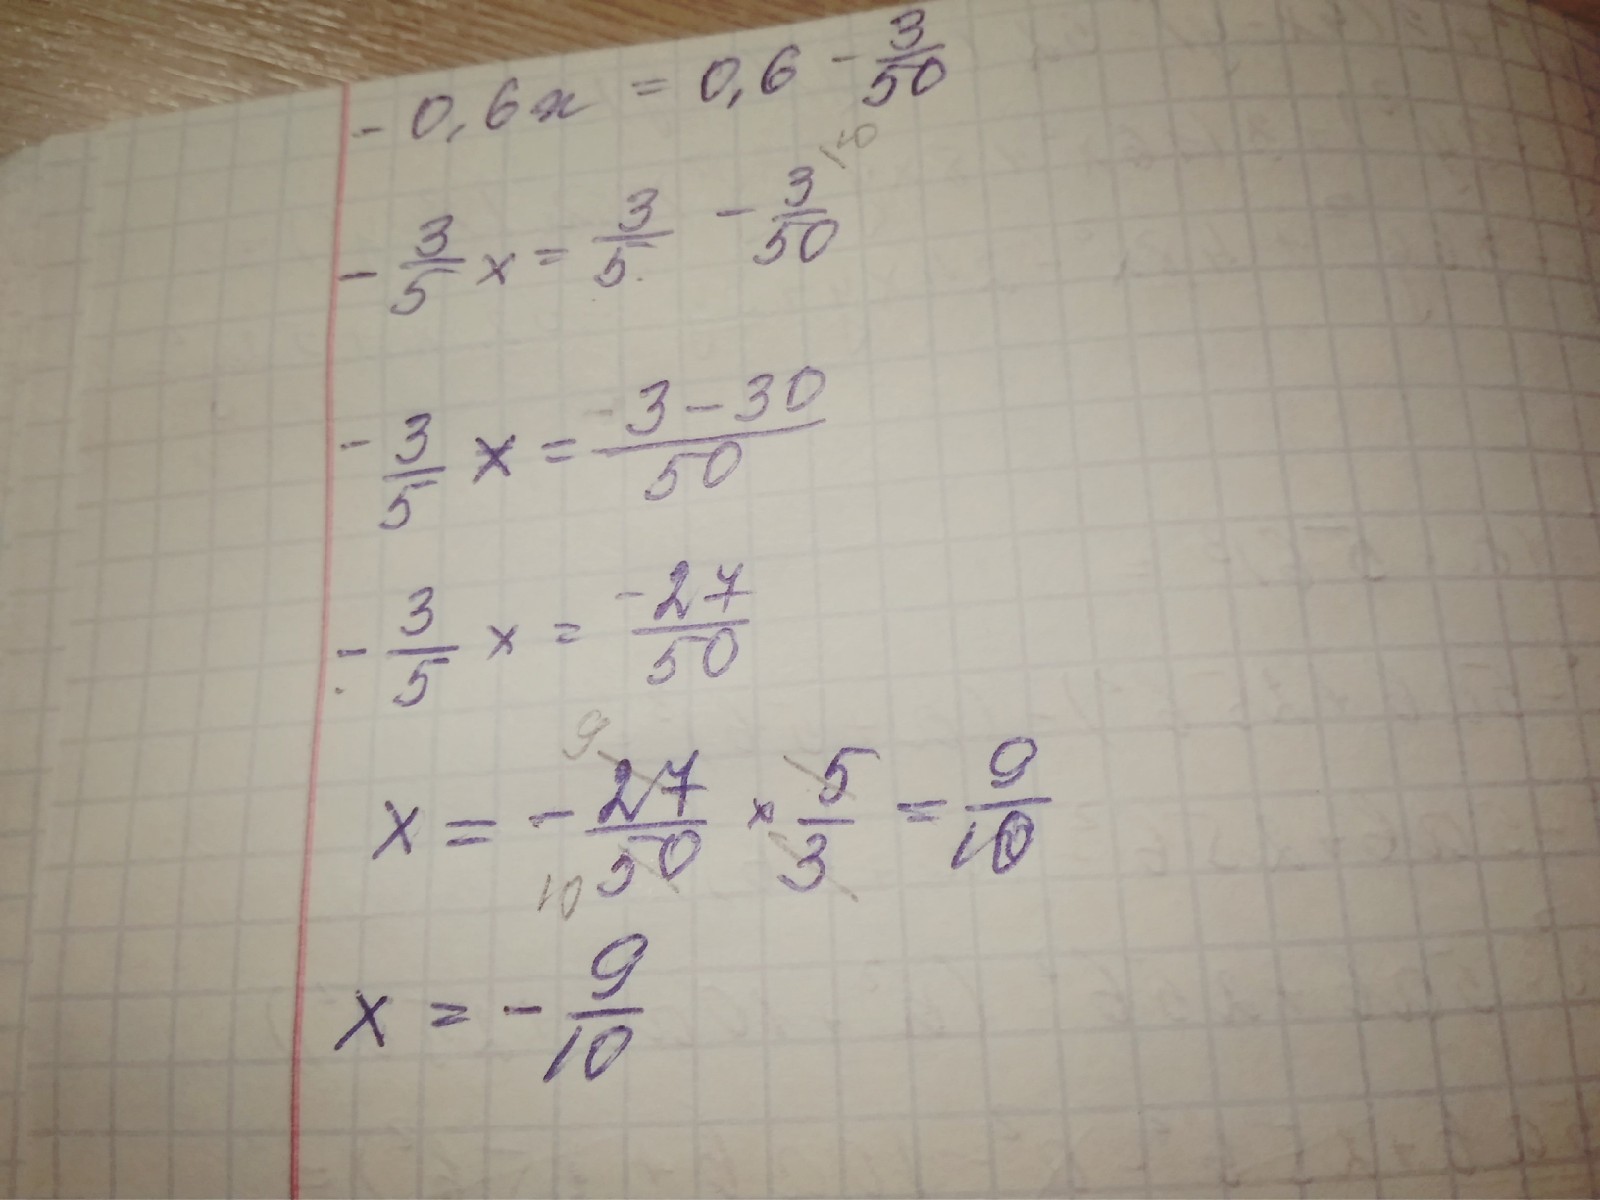 - 0,6x = 0,6 - 3/50
- 3/5 x = 3/5 - 3/50
- 3/5 x = (- 3 - 30)/50
- 3/5 x = -27/50
x = - 27/50 × 5/3 = 9/10
x = - 9/10